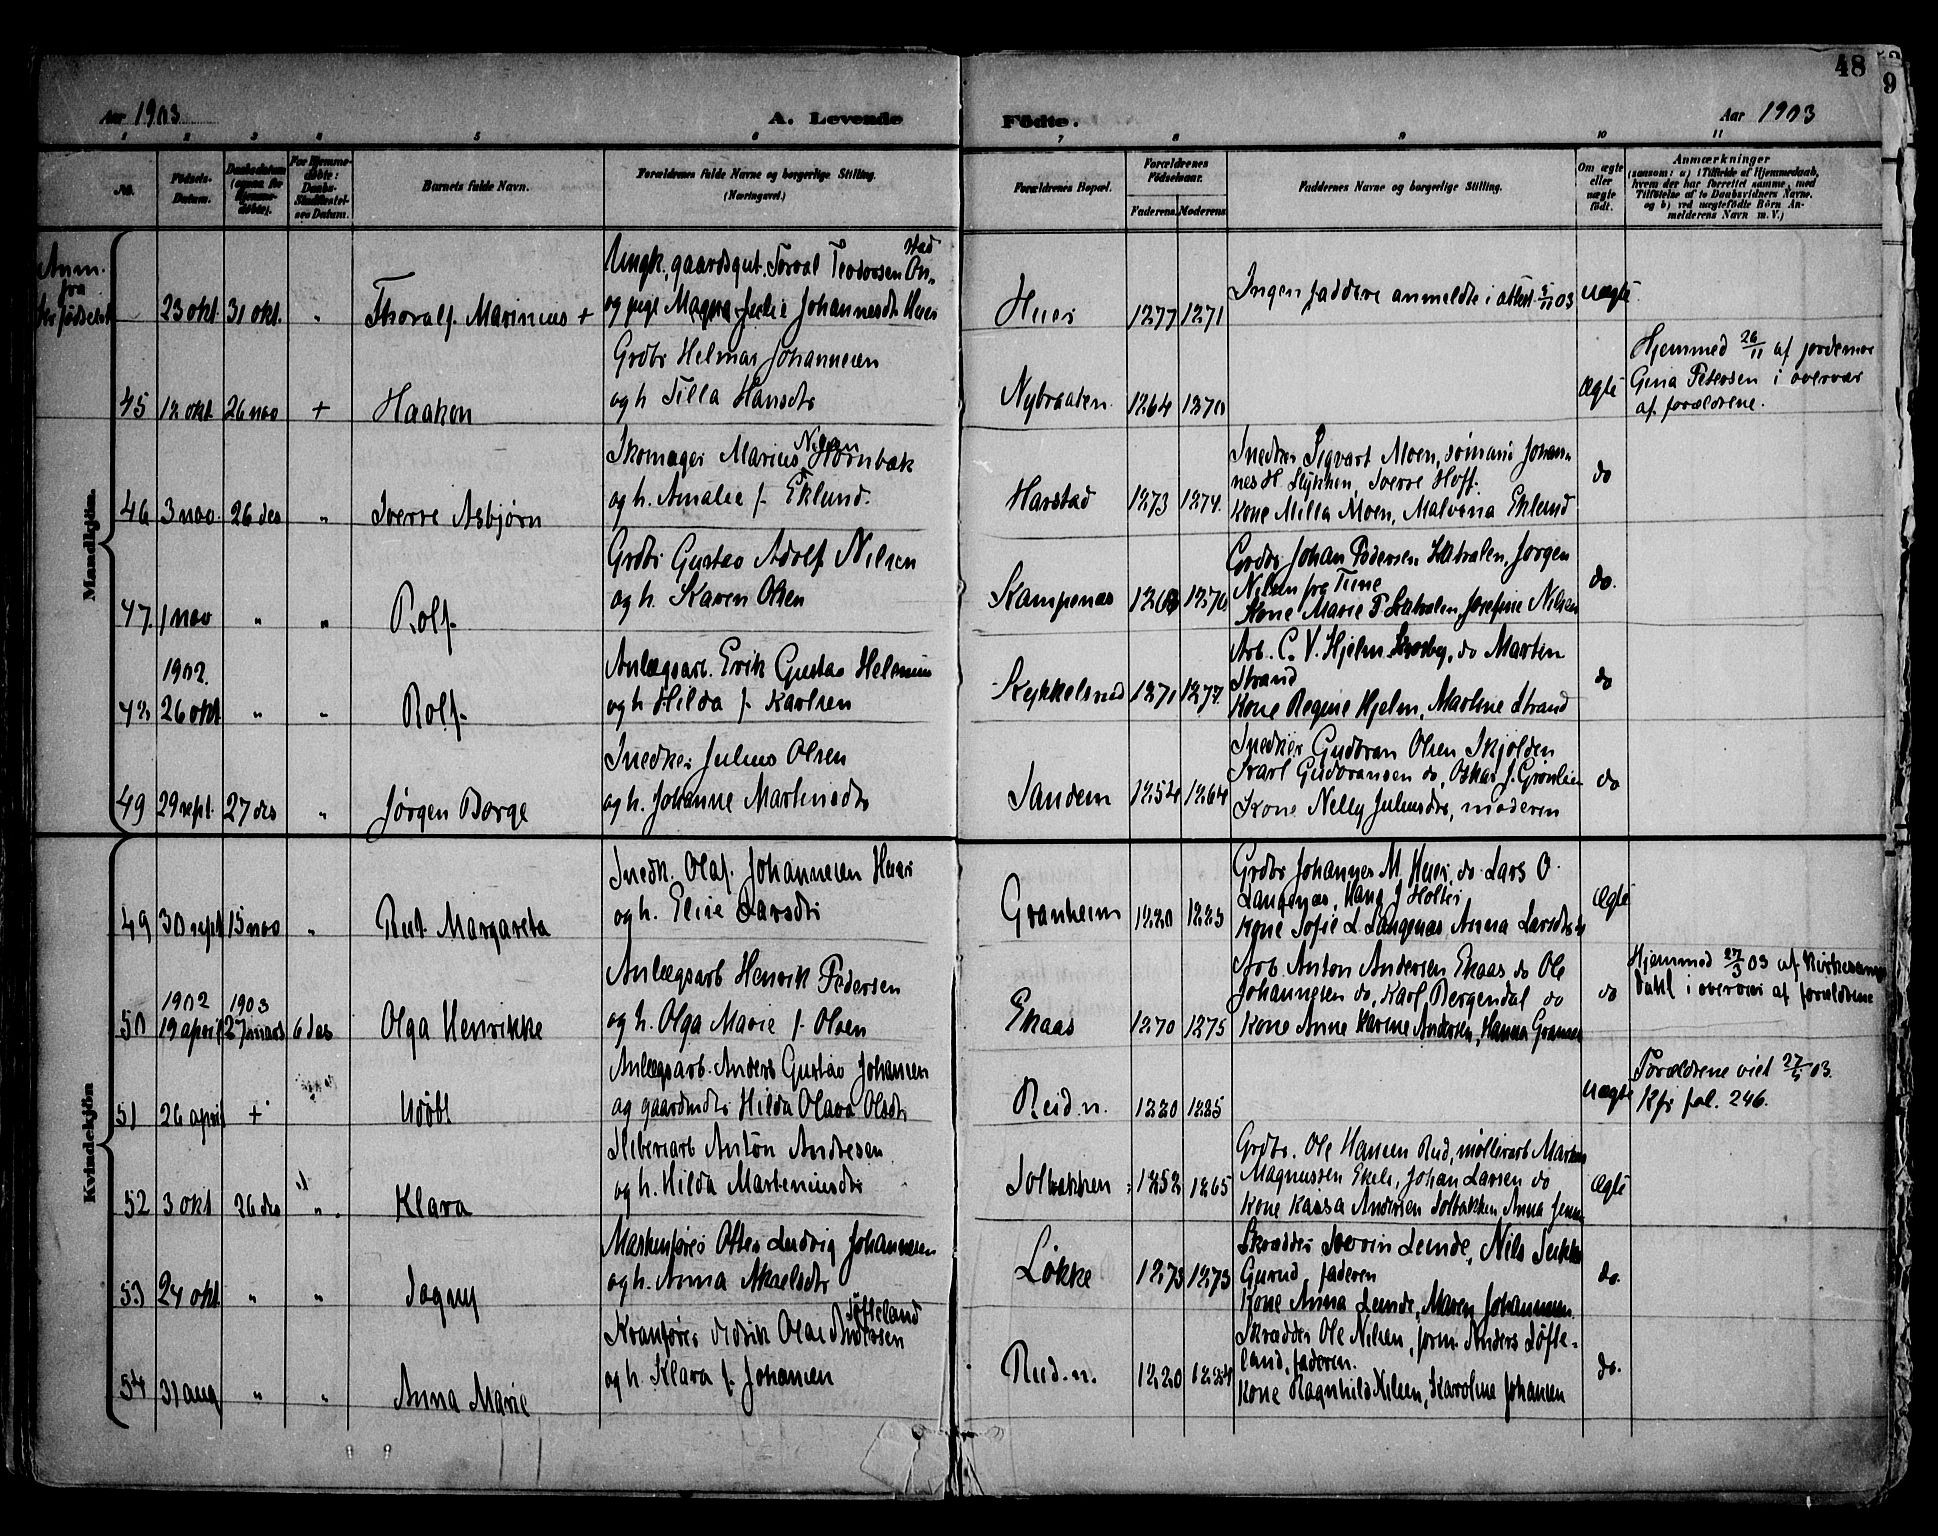 48
9
Aar 1903
A. Levende
Födte.
Aar 1903
1 2 3 4 5 6 7 8 9 10 11
No.
Födsels-Datum.
Daabsdatum
Barnets fulde Navn.
Forældrenes fulde Navne og borgerlige Stilling.
(Næringsvei.)
Forældrenes Bopæl.
Forældrenes Fødselsaar.
Faderens. Moderens.
Faddernes Navne og borgerlige Stilling.
Om ægte eller uægte født.
Anmærkninger
(saasom: a) i Tilfælde af Hjemmedaab,
hvem der har forrettet samme, med
Tilföielse af to Daabsvidners Navne,
og b) ved uægtefödte Börn An-
melderens Navn m. V.)
Mandkjön.
Anm.
fra
23 okt. 31 okt. " Thoralf Marinius +
Ungk. gaardsgut Torval Teodorsen
og pige Magna Julie Johannesdtr Huer
Huer 1877 1871
Ingen faddere anmeldte i attest 03
uægte
45 12 okt 26 nov + Haakon
Grdbr Helmar Johannesen
og h. Tilla Hansdtr
Nybraaten 1864 1870
ægte
Hjemmed 26/11 af jordemor
Gina Petersen i overvær
af forældrene.
46 3 nov. 26 des " Sverre Asbjørn
Skomager Marius Nilsen Hornbæk
og h. Amalie f. Eklund.
Harstad 1873 1874.
Snedker Sigvart Moen, sömand Johan-
nes H Stykken, Sverre Hoff.
Kone Milla Moen, Malvina Eklund
do
47. 1 nov " " Rolf
Grdbr Gustav Adolf Nilsen
og h. Karen Olsen
Kampenæs 1870
Grdbr Johan Pedersen Skabralen, Jorgen
Nilsen fra Tune
Kone Marie P. Skabralen, Josefine Nilsen
do.
1902.
48 26 okt " " Rolf
Anlægsarb. Erik Gustav Helenius
og h Hilda f. Karlsen
Kykkelsrud 1871 1877.
Arb. C. V. Hjelm, do Martin
Strand
Kone Regine Hjelm, Martine Strand
do
49 29 sept. 27 des " Jørgen Borge
Snedker Julius Olsen
og h. Johanne Martinsdtr
Sandem 1854 1864
Snedker Gudbran Olsen Skjolden
Karl Gudbransen do, Oskar J. Grønlien
Kone Nelly Juliusdtr, moderen
do
Kvindekjön
49 30 sept 15 nov " Rut Margareta
Snedk. Olaf Johannesen Huer
og h. Elise Larsdtr
Granheim 1880 1883
Grdbr Johannes M. Huer, do Lars O.
Langenæs, Hans J Holter
Kone Sofie L Langenæs, Anna Larsdtr
ægte
1902 1903
50 19 april 27 mars 6 des Olga Henrikke
Anlægsarb Henrik Pedersen
og h. Olga Marie f. Olsen
Ekaas 1870 1875
Arb. Anton Andersen Ekaas do Ole
Johannesen do, Karl Bergendal do
Kone Anne Karine Andersen, Hanna
do
Hjemmed 27/3 03 af Kirkesanger
Dahl i overvær af forældrene
51 26 april + Udöbt
Anlægsarb. Anders Gustav Johansen
og gaardmdtr Hilda Olava Olsdtr
Rud. n. 1880 1885
uægte
Forældrene viet 27/5 03.
Kfr fol. 246.
52 3 okt 26 des " Klara
Sliberiarb Anton Andresen
og h. Hilda Marteniusdtr
Solbakken 1852 1865
Grdbr. Ole Hansen Rud, møllerarb Martin
Magnussen Ekeli, Johan Larsen do
Kone Kaisa Andersen Solbakken Anna Jensen
ægte
53 24 okt " " Dagny
Maskinfører Otter Ludvig Johannesen
og h. Anna Akselsdtr
Løkke 1873 1873
Skrædder Severin Lunde, Nils
faderen
Kone Anna Lunde, Maren Johannesen
do.
54 31 aug " " Anna Marie
Kranfører Didrik Olai Andersen Løfteland
og h. Klara f. Johansen
Rud. n. 1880 1884
Skrædder Ole Nilsen, form. Anders Løfte-
land, faderen.
Kone Ragnhild Nilsen, Karoline Johansen
do.